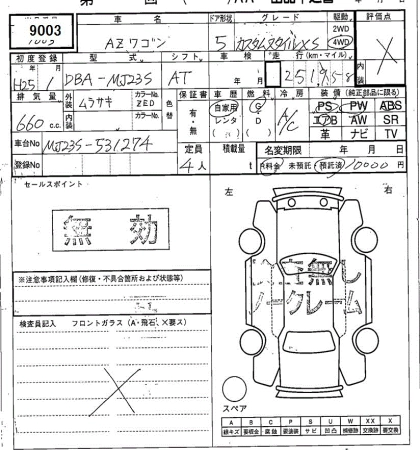 9003
車名 ドア形状 グレード 駆動 評価点
AZワゴン 5 カスタムスタイルXS 2WD 4WD X
初度登録 型式 シフト 車検 走行(km・マイル)
H25年 1月 DBA-MJ23S AT
排気量 外装 カラーNo. 色替 保証書 車歴 燃料 冷房 装備(純正部品に限る)
660c.c. ムラサキ ZED 有・無 自家用 レンタ G D A/C PS PW ABS
内装 カラーNo. エアB AW SR
革 ナビ TV
車台No MJ23S-531274 定員 積載量 名変期限 年 月 日
登録No 4人 t 料金 未預託 預託済 10000円
セールスポイント
左 右
無効
※注意事項記入欄(修復・不具合箇所および状態等)
ノークレーム
検査員記入 フロントガラス(A・飛石、X要ス)
X
スペア
A B C P S U W XX X
線キズ 要板金 腐蝕 要塗装 サビ 凹凸 補修跡 交換跡 要交換